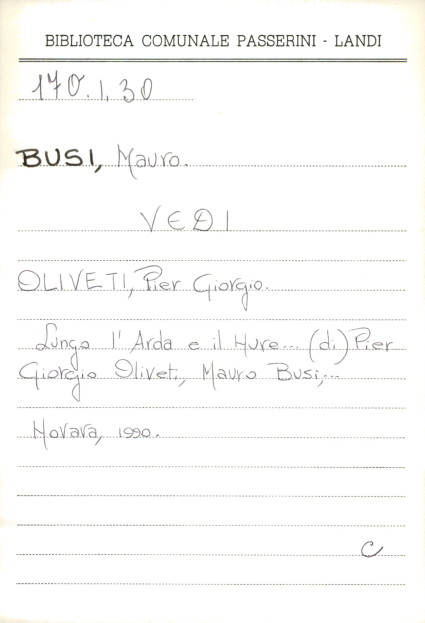 BIBLIOTECA COMUNALE PASSERINI - LANDI
170.1.30
BUSI, Mauro.
VEDI
OLIVETI, Pier Giorgio.
Lungo l'Arda e il Mure... (di) Pier
Giorgio Oliveti, Mauro Busi,...
Novara, 1990.
C